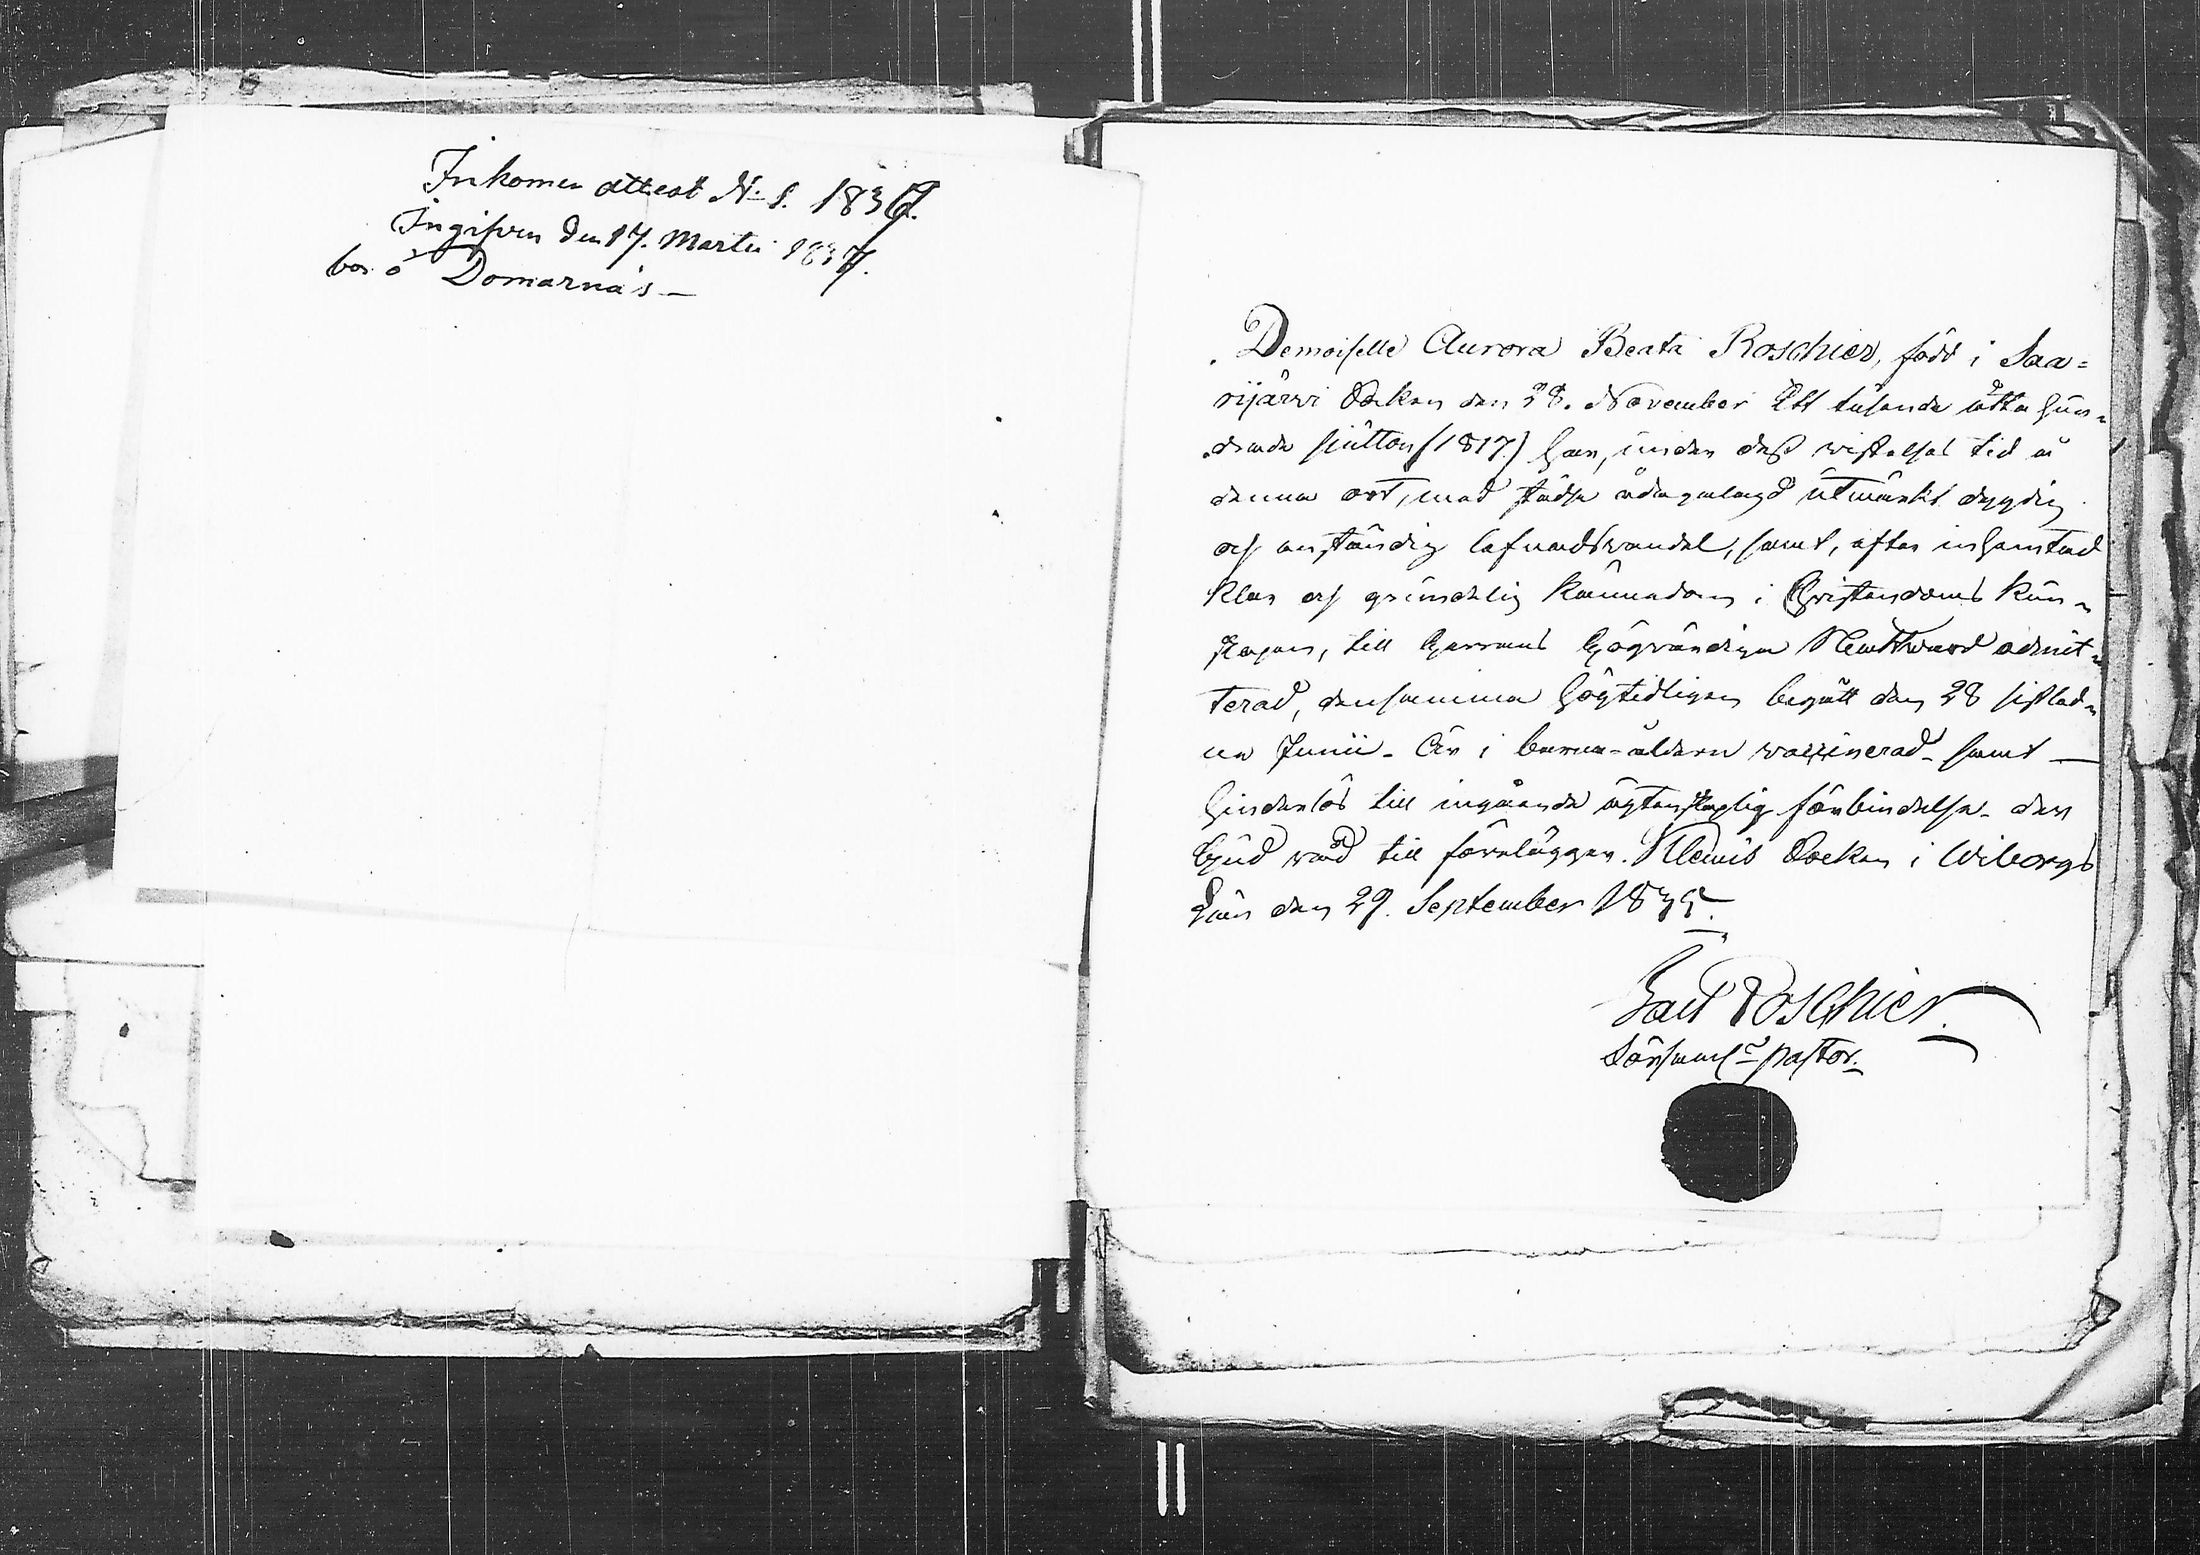 Inkommen attest N:o 8. 1837.
Ingifven den 17. Martii 1837.
bor å Domarnäs —
Demoiselle Aurora Beata Roschier, född i Saa=
rijärvi Socken den 28. November Ett tusende åtta hun=
drade sjutton (1817.) har, under dess vistelses tid å
denna ort, med städse ådagalagd utmärkt dygdig
och anständig lefnadsvandel, samt, efter inhemtad
klar och grundelig kännedom i Christendoms kun=
skapen, till Herrans Högvärdiga Nattward admit=
terad, densamma högtidligen begått den 28 sistled=
ne Junii. Är i barna-åldern vaccinerad samt —
hinderlös till ingående ägtenskaplig förbindelse. den
Gud råd till förelägger. Klemis Socken i Wiborgs
Län den 29. September 1835.
Carl Roschier.
Församl:s pastor.